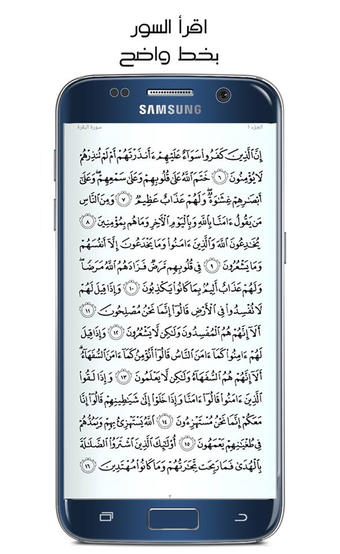 اقرأ السور
بخط واضح
SAMSUNG
الجزء ١
سورة البقرة
إِنَّ ٱلَّذِينَ كَفَرُوا۟ سَوَآءٌ عَلَيْهِمْ ءَأَنذَرْتَهُمْ أَمْ لَمْ تُنذِرْهُمْ
لَا يُؤْمِنُونَ ٦ خَتَمَ ٱللَّهُ عَلَىٰ قُلُوبِهِمْ وَعَلَىٰ سَمْعِهِمْ ۖ وَعَلَىٰٓ
أَبْصَـٰرِهِمْ غِشَـٰوَةٌ ۖ وَلَهُمْ عَذَابٌ عَظِيمٌ ٧ وَمِنَ ٱلنَّاسِ
مَن يَقُولُ ءَامَنَّا بِٱللَّهِ وَبِٱلْيَوْمِ ٱلْـَٔاخِرِ وَمَا هُم بِمُؤْمِنِينَ ٨
يُخَـٰدِعُونَ ٱللَّهَ وَٱلَّذِينَ ءَامَنُوا۟ وَمَا يَخْدَعُونَ إِلَّآ أَنفُسَهُمْ
وَمَا يَشْعُرُونَ ٩ فِى قُلُوبِهِم مَّرَضٌ فَزَادَهُمُ ٱللَّهُ مَرَضًا ۖ
وَلَهُمْ عَذَابٌ أَلِيمٌۢ بِمَا كَانُوا۟ يَكْذِبُونَ ١٠ وَإِذَا قِيلَ لَهُمْ
لَا تُفْسِدُوا۟ فِى ٱلْأَرْضِ قَالُوٓا۟ إِنَّمَا نَحْنُ مُصْلِحُونَ ١١
أَلَآ إِنَّهُمْ هُمُ ٱلْمُفْسِدُونَ وَلَـٰكِن لَّا يَشْعُرُونَ ١٢ وَإِذَا قِيلَ
لَهُمْ ءَامِنُوا۟ كَمَآ ءَامَنَ ٱلنَّاسُ قَالُوٓا۟ أَنُؤْمِنُ كَمَآ ءَامَنَ ٱلسُّفَهَآءُ ۗ
أَلَآ إِنَّهُمْ هُمُ ٱلسُّفَهَآءُ وَلَـٰكِن لَّا يَعْلَمُونَ ١٣ وَإِذَا لَقُوا۟
ٱلَّذِينَ ءَامَنُوا۟ قَالُوٓا۟ ءَامَنَّا وَإِذَا خَلَوْا۟ إِلَىٰ شَيَـٰطِينِهِمْ قَالُوٓا۟ إِنَّا
مَعَكُمْ إِنَّمَا نَحْنُ مُسْتَهْزِءُونَ ١٤ ٱللَّهُ يَسْتَهْزِئُ بِهِمْ وَيَمُدُّهُمْ
فِى طُغْيَـٰنِهِمْ يَعْمَهُونَ ١٥ أُو۟لَـٰٓئِكَ ٱلَّذِينَ ٱشْتَرَوُا۟ ٱلضَّلَـٰلَةَ
بِٱلْهُدَىٰ فَمَا رَبِحَت تِّجَـٰرَتُهُمْ وَمَا كَانُوا۟ مُهْتَدِينَ ١٦
٣